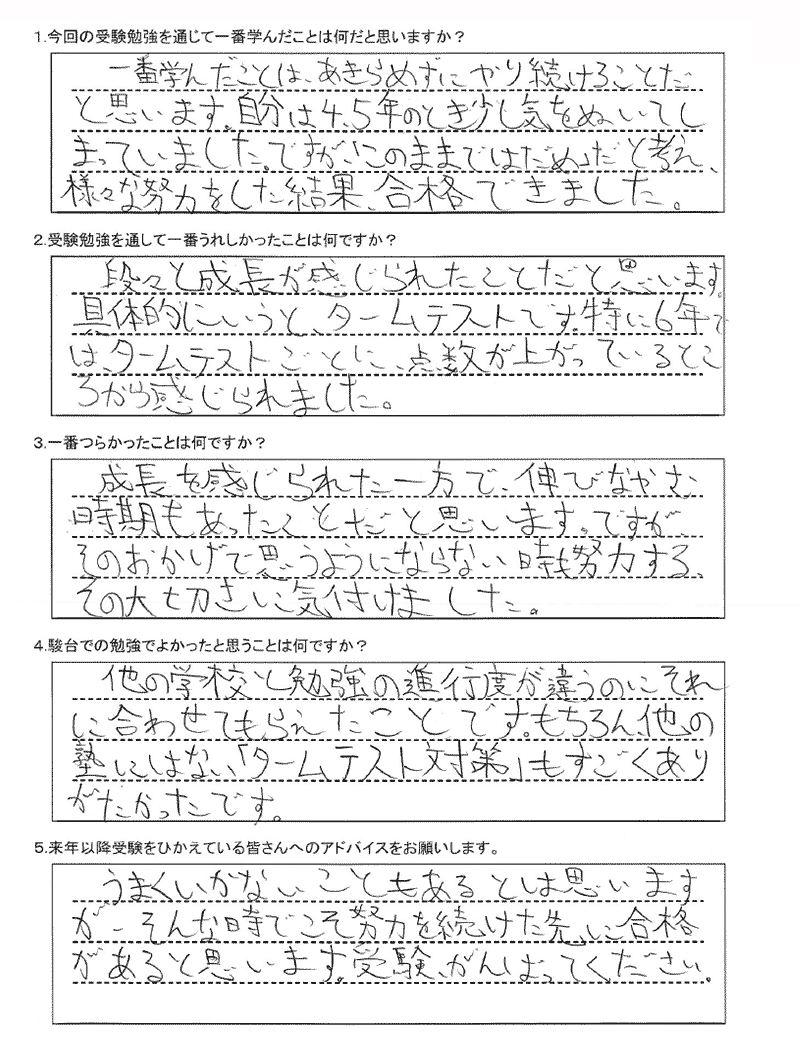 1.今回の受験勉強を通じて一番学んだことは何だと思いますか？
一番学んだことは、あきらめずにやり続けることだ
と思います。自分は4、5年のとき少し気をぬいてし
まっていました。ですが、「このままではだめ」だと考え、
様々な努力をした結果、合格できました。
2.受験勉強を通して一番うれしかったことは何ですか？
段々と成長が感じられたことだと思います。
具体的にいうと、タームテストです。特に6年で
は、タームテストごとに、点数が上がっているとこ
ろから感じられました。
3.一番つらかったことは何ですか？
成長を感じられた一方で、伸びなやむ
時期もあったことだと思います。ですが、
そのおかげで思うようにならない時も努力する、
その大切さに気付けました。
4.駿台での勉強でよかったと思うことは何ですか？
他の学校と勉強の進行度が違うのにそれ
に合わせてもらえたことです。もちろん、他の
塾にはない「タームテスト対策」もすごくあり
がたかったです。
5.来年以降受験をひかえている皆さんへのアドバイスをお願いします。
うまくいかないこともあるとは思います
が、そんな時でこそ努力を続けた先に合格
があると思います。受験、がんばってください。